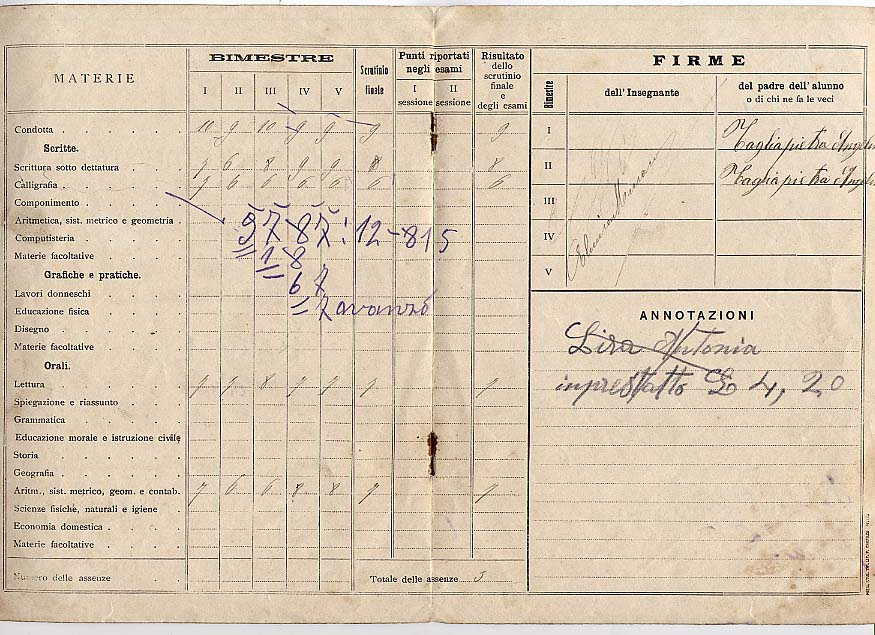 MATERIE
BIMESTRE
I II III IV V
Scrutinio finale
Punti riportati negli esami
I sessione II sessione
Risultato dello scrutinio finale e degli esami
Condotta 10 9 10 9 9 9 9
Scritte.
Scrittura sotto dettatura 7 6 8 9 9 8 8
Calligrafia 7 6 6 6 6 6 6
Componimento
Aritmetica, sist. metrico e geometria
97 87 : 12 - 815
Computisteria
Materie facoltative
18
Grafiche e pratiche.
67
Lavori donneschi
Educazione fisica
7 avanzo
Disegno
Materie facoltative
Orali.
Lettura 7 7 8 7 7 7 7
Spiegazione e riassunto
Grammatica
Educazione morale e istruzione civile
Storia
Geografia
Aritm., sist. metrico, geom. e contab. 7 6 6 8 8 7 7
Scienze fisiche, naturali e igiene
Economia domestica
Materie facoltative
Numero delle assenze
Totale delle assenze 3
FIRME
Bimestre
dell'Insegnante
del padre dell'alunno
o di chi ne fa le veci
I Tagliapietra Angelo
II Tagliapietra Angelo
III
IV
V
ANNOTAZIONI
Lira Antonia
imprestatto £ 4,20